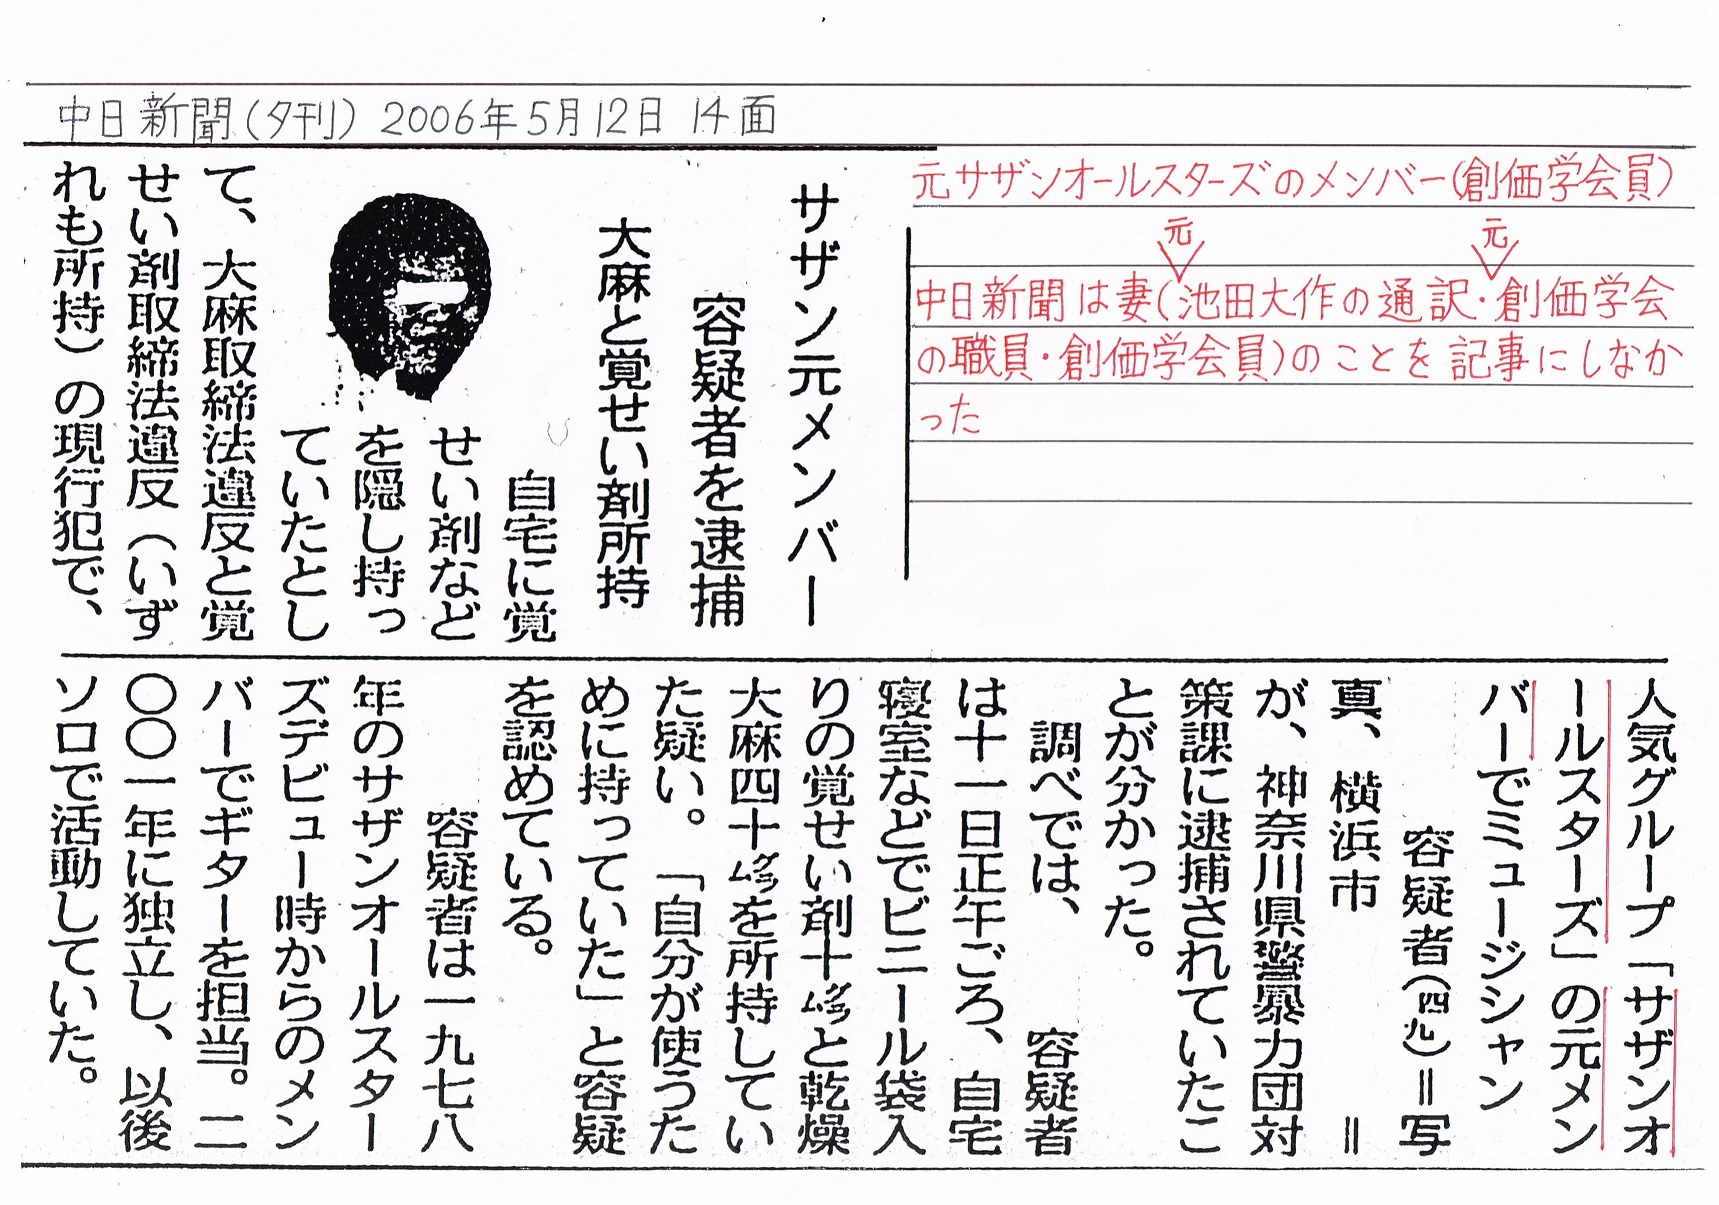 中日新聞(夕刊) 2006年5月12日 14面
元サザンオールスターズのメンバー(創価学会員)
元 元
中日新聞は妻(池田大作の通訳・創価学会
の職員・創価学会員)のことを記事にしなか
った
サザン元メンバー
容疑者を逮捕
大麻と覚せい剤所持
自宅に覚
せい剤など
を隠し持っ
ていたとし
て、大麻取締法違反と覚
せい剤取締法違反(いず
れも所持)の現行犯で、
人気グループ「サザンオ
ールスターズ」の元メン
バーでミュージシャン
容疑者(四九)=写
真、横浜市 =
が、神奈川県警暴力団対
策課に逮捕されていたこ
とが分かった。
調べでは、 容疑者
は十一日正午ごろ、自宅
寝室などでビニール袋入
りの覚せい剤十㌘と乾燥
大麻四十㌘を所持してい
た疑い。「自分が使うた
めに持っていた」と容疑
を認めている。
容疑者は一九七八
年のサザンオールスター
ズデビュー時からのメン
バーでギターを担当。二
〇〇一年に独立し、以後
ソロで活動していた。